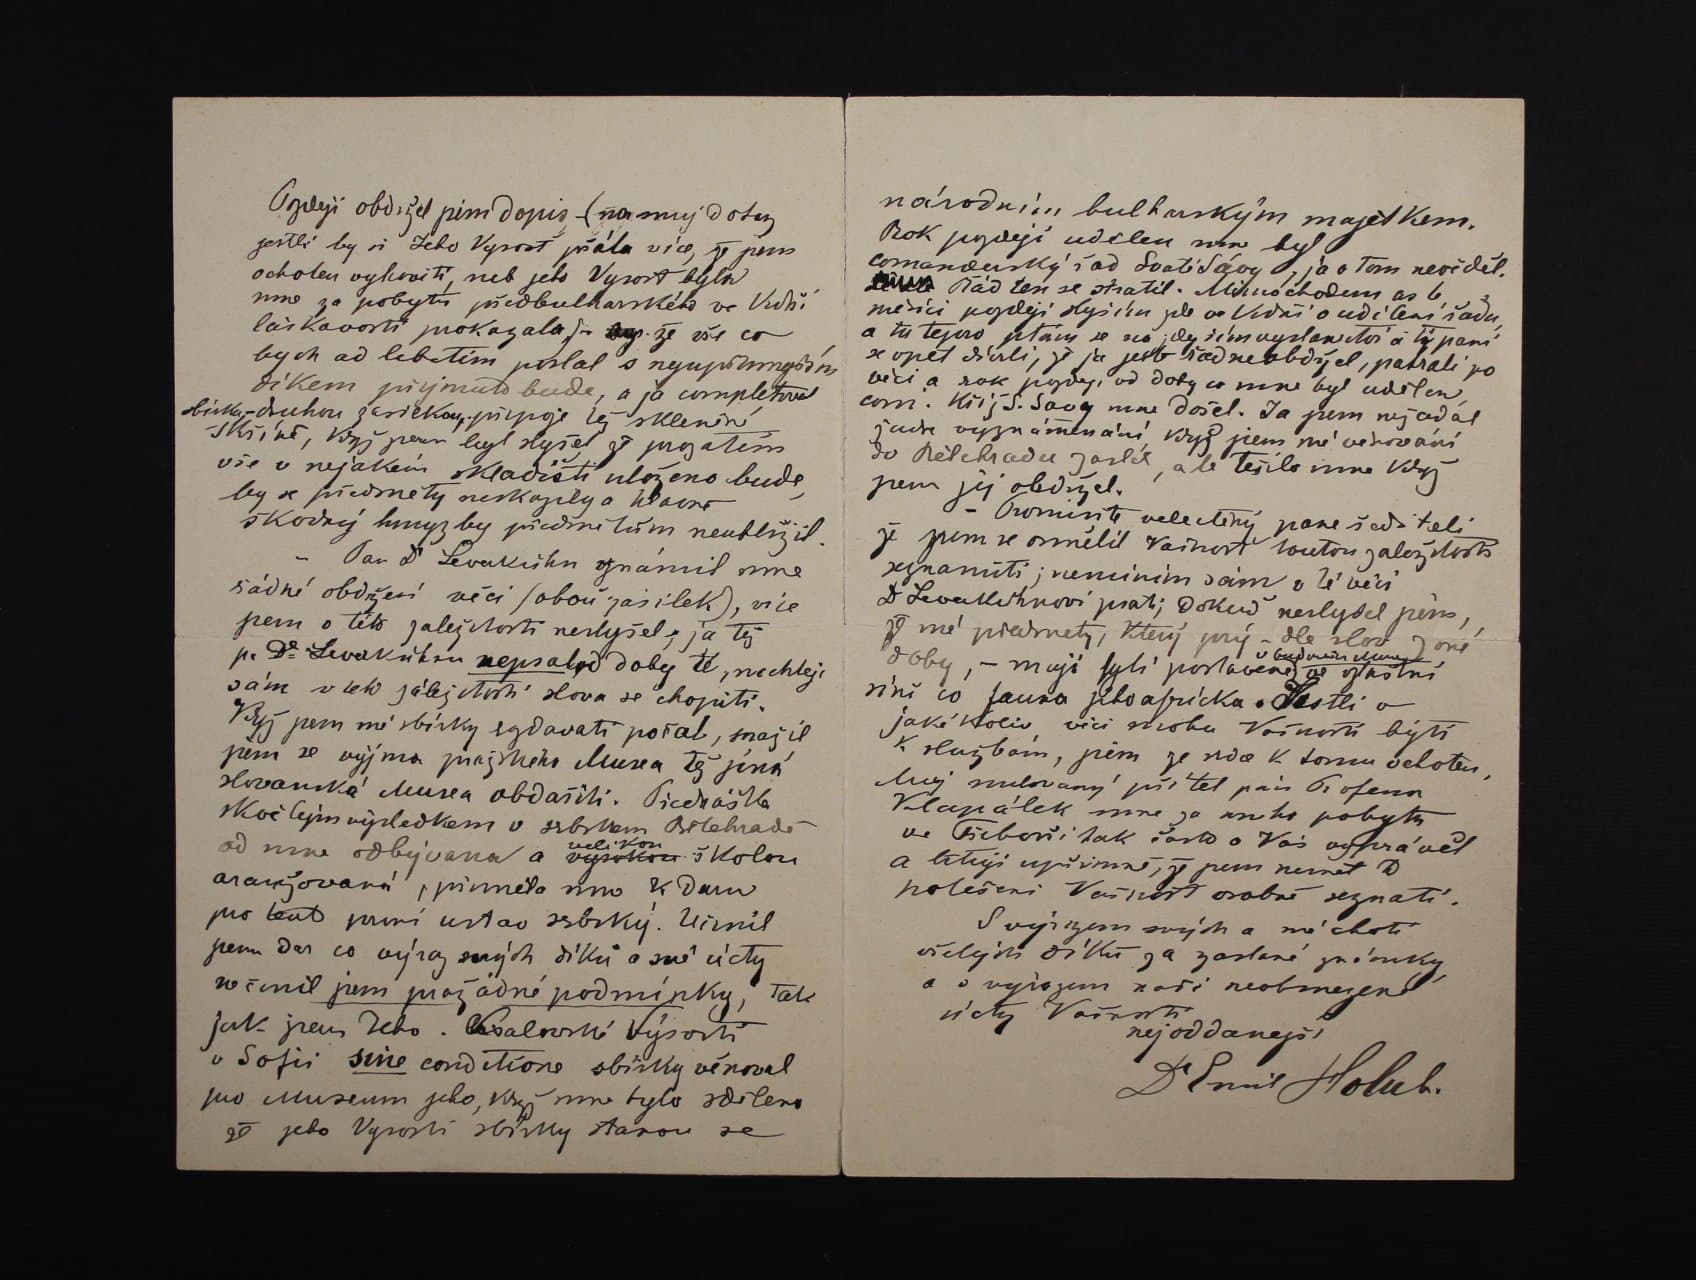 Později obdržel jsem dopis – (na muj dotaz
jestli by si Jeho Vysost přála více, že jsem
ochoten vyhověti, neb jeho Vysost byla
mne za pobytu předbulharského ve Vídni
láskavosti prokazala) – že vše co
bych ad libitum poslal s nejupřímnějším
díkem přijmuto bude, a ja completoval
sbírku druhou zásilkou, připoje též skleněné
skříně, když jsem byl slyšel že prozatím
vše v nejakém skladišti uloženo bude,
by se předměty neskazily a hlavně
škodný hmyz by předmětům neublížil.
– Pan Dr Leverkühn oznámil mne
řádné obdržení věcí (obou zásilek), více
jsem o této záležitosti neslyšel, ja též
p. Dr Leverkühnu nepsal od doby té, nechtěje
sám v této záležitosti slova se chopiti.
Když jsem mé sbírky rozdavati počal, snažil
jsem se vyjma pražského Musea též jiná
slovanská Musea obdařiti. Přednáška
skvělým výsledkem v srbském Bělehradě
od mne odbývaná a vysokou velikou školou
aranžovaná, přiměla mne k daru
pro tent první ustav srbský. Učinil
jsem dar co výraz mých díků a mé úcty
nečinil jsem pražádné podmínky, tak
jak jsem Jeho Královské Výsosti
v Sofii sine conditione sbírky věnoval
pro Museum jeho, když mne bylo sděleno
že jeho Vysosti sbírky stanou se
národním bulharským majetkem.
Rok později udělen mne byl
comandeurský řád Svatého Sávy, já o tom nevěděl.
Řád ten se ztratil. Mimochodem as 6
měsíců později slyším zde ve Vídni o udělení řádu,
a tu tejdo ptám se na jdejším vyslanectví a tu páni
se opět divili, že ja ještě řád neobdržel, pátrali po
věci a rok později od doby co mne byl udělen,
com. Kříž S. Savy mne došel. Ja jsem nežádal
žádné vyznamenání, když jsem mé věnování
do Bělehradu zaslal, ale těšilo mne když
jsem jej obdržel.
– Promiňte velectěný pane řediteli
že jsem se osmělil Vašnost toutou záležitostí
seznamiti; nemíním sám v té věci
Dr Leverkühnovi psati, dokud neslyšel jsem,
že mé předměty, který prý – dle slov z oné
doby, – mají býti postavené v budovém Museu ve zvláštní
síni co fauna jihoafrická. Jestli v
jakékoliv věci mohu Vašnosti býti
k službám, jsem ze srdce k tomu ochoten.
Muj milovaný přítel pán Profesor
Klapálek mne za mého pobytu
ve Třeboni tak často o Vás vyprávěl
a lituji upřímně, že jsem neměl
potěšení Vašnost osobně seznati.
S výrazem mých a mé choti
vřelých díků za zaslané známky
a s výrazem naší neobmezené
úcty Vašnosti
nejoddanější
Dr Emil Holub.